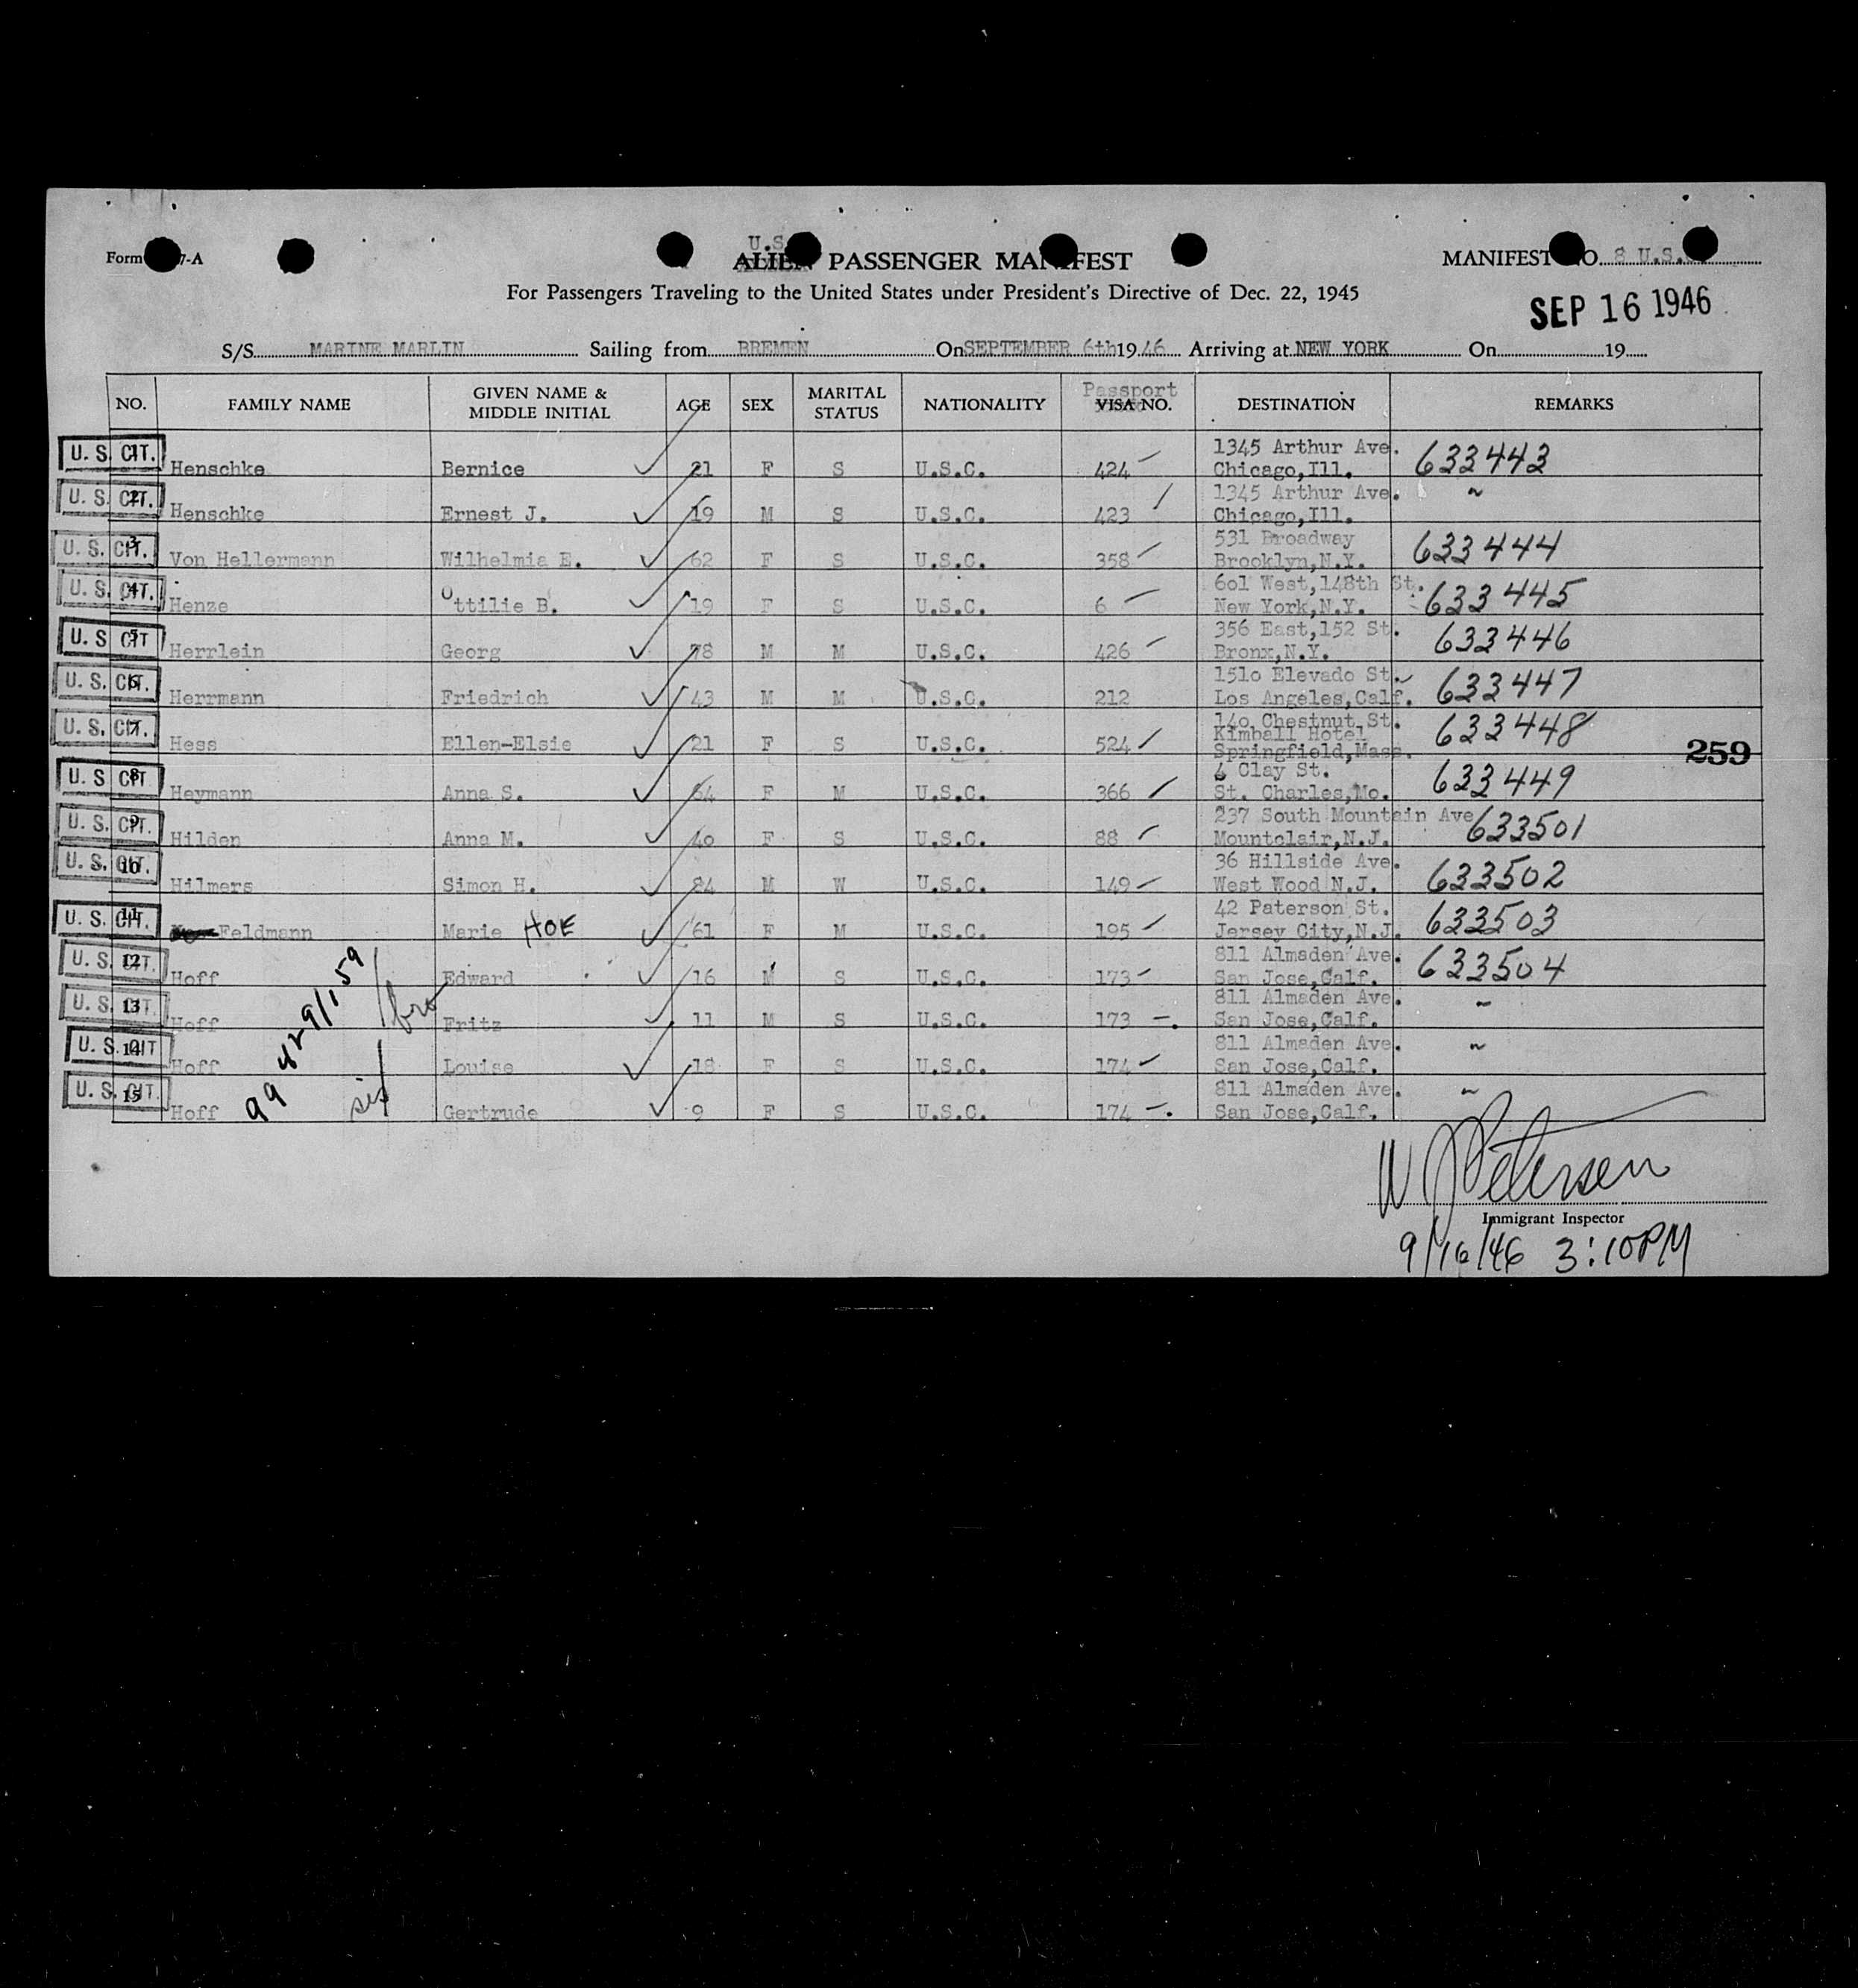 U.S.
Form 7-A ALIEN PASSENGER MANIFEST MANIFEST NO. 8 U.S.
For Passengers Traveling to the United States under President's Directive of Dec. 22, 1945
SEP 16 1946
S/S MARINE MARLIN Sailing from BREMEN On SEPTEMBER 6th 1946 Arriving at NEW YORK On 19
NO. FAMILY NAME GIVEN NAME & MIDDLE INITIAL AGE SEX MARITAL STATUS NATIONALITY Passport VISA NO. DESTINATION REMARKS
U. S. CIT. 1 Henschke Bernice 21 F S U.S.C. 424 1345 Arthur Ave. Chicago,Ill. 633443
U. S. CIT. 2 Henschke Ernest J. 19 M S U.S.C. 423 1345 Arthur Ave. Chicago,Ill. ~
U. S. CIT. 3 Von Hellermann Wilhelmia E. 62 F S U.S.C. 358 531 Broadway Brooklyn,N.Y. 633444
U. S. CIT. 4 Henze Ottilie B. 19 F S U.S.C. 6 6o1 West,148th St. New York,N.Y. 633445
U. S CIT 5 Herrlein Georg 78 M M U.S.C. 426 356 East,152 St. Bronx,N.Y. 633446
U. S. CIT. 6 Herrmann Friedrich 43 M M U.S.C. 212 151o Elevado St. Los Angeles,Calf. 633447
U. S. CIT. 7 Hess Ellen-Elsie 21 F S U.S.C. 524 14o Chestnut St. Kimball Hotel Springfield,Mass. 633448
259
U. S CIT 8 Heymann Anna S. 64 F M U.S.C. 366 4 Clay St. St. Charles,Mo. 633449
U. S. CIT. 9 Hilden Anna M. 4o F S U.S.C. 88 237 South Mountain Ave Mountclair,N.J. 633501
U. S. CIT. 10 Hilmers Simon H. 84 M W U.S.C. 149 36 Hillside Ave. West Wood N.J. 633502
U. S. CIT. 11 Feldmann Marie HOE 61 F M U.S.C. 195 42 Paterson St. Jersey City,N.J. 633503
U. S. CIT. 12 Hoff Edward 16 M S U.S.C. 173 811 Almaden Ave. San Jose,Calf. 633504
U. S. CIT. 13 Hoff bro Fritz 11 M S U.S.C. 173 811 Almaden Ave. San Jose,Calf. ~
U. S. CIT 14 Hoff Louise 18 F S U.S.C. 174 811 Almaden Ave. San Jose,Calf. ~
U. S. CIT. 15 Hoff sis Gertrude 9 F S U.S.C. 174 811 Almaden Ave. San Jose,Calf. ~
W J Petersen
Immigrant Inspector
9/16/46 3:10PM